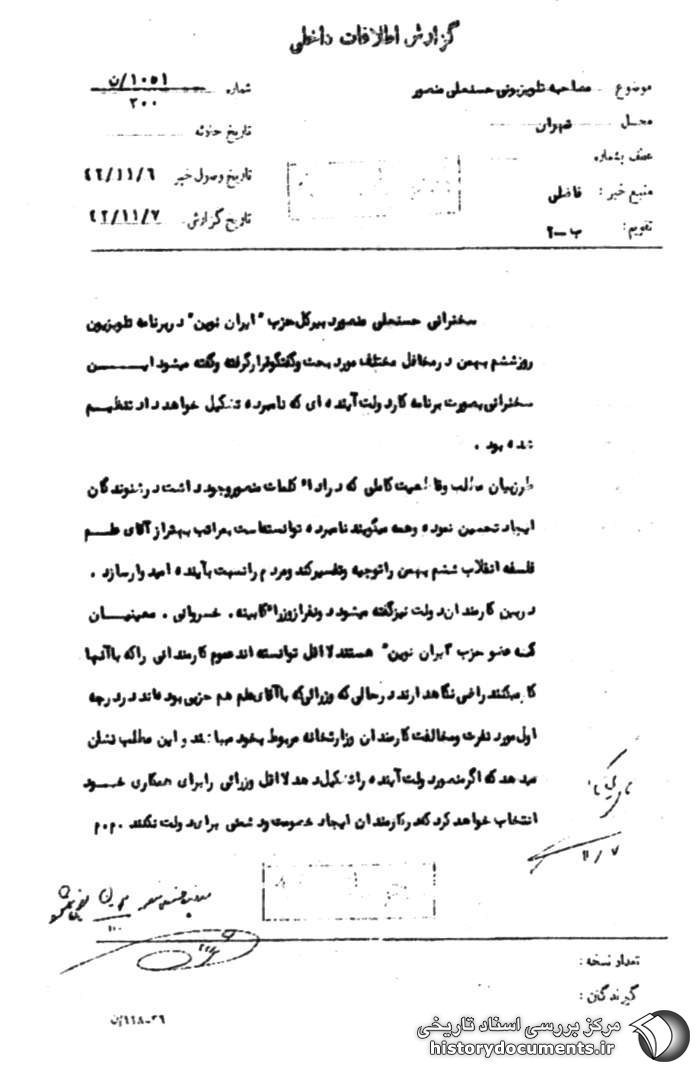 گزارش اطلاعات داخلی
موضوع مصاحبه تلویزیونی حسنعلی منصور
شماره ۱۰۵۱/ن
۳۰۰
محل تهران
تاریخ حادثه
عطف بشماره
تاریخ وصول خبر ۴۲/۱۱/۶
منبع خبر : فاضلی
تاریخ گزارش ۴۲/۱۱/۷
تقویم: ب-۲
سخنرانی حسنعلی منصور دبیرکل حزب "ایران نوین" در برنامه تلویزیون
روز ششم بهمن در محافل مختلف مورد بحث و گفتگو قرار گرفته و گفته میشود ایـــن
سخنرانی بصورت برنامه کار دولت آینده ای که نامبرده تشکیل خواهد داد تنظیـــم
شده بود .
طرز بیان مطالب و قاطعیت کاملی که در اداء کلمات منصور وجود داشت در شنوندگان
ایجاد تحسین نموده و همه میگویند نامبرده توانسته است بمراتب بهتر از آقای علـــم
فلسفه انقلاب ششم بهمن را توجیه و تفسیر کند و مردم را نسبت بآینده امیدوار سازد .
در بین کارمندان دولت نیز گفته میشود دو نفر از وزراء کابینه . خسروانی . معینیـــان
کــه عضو حزب "ایران نوین" هستند لااقل توانسته اند عموم کارمندانی را که با آنها
کار میکنند راضی نگاهدارند در حالی که وزرائی که با آقای علم هم حزبی بوده اند در درجه
اول مورد نفرت و مخالفت کارمندان وزارتخانه مربوط بخود میباشند و این مطلب نشان
میدهد که اگر منصور دولت آینده را تشکیل دهد لااقل وزرائی را برای همکاری خـــود
انتخاب خواهد کرد که در کارمندان ایجاد خصومت و دشمنی برای دولت نکنند . م.م
۱۱/۷
۱۰۰
تعداد نسخه :
گیرندگان :
مرکز بررسی اسناد تاریخی
historydocuments.ir